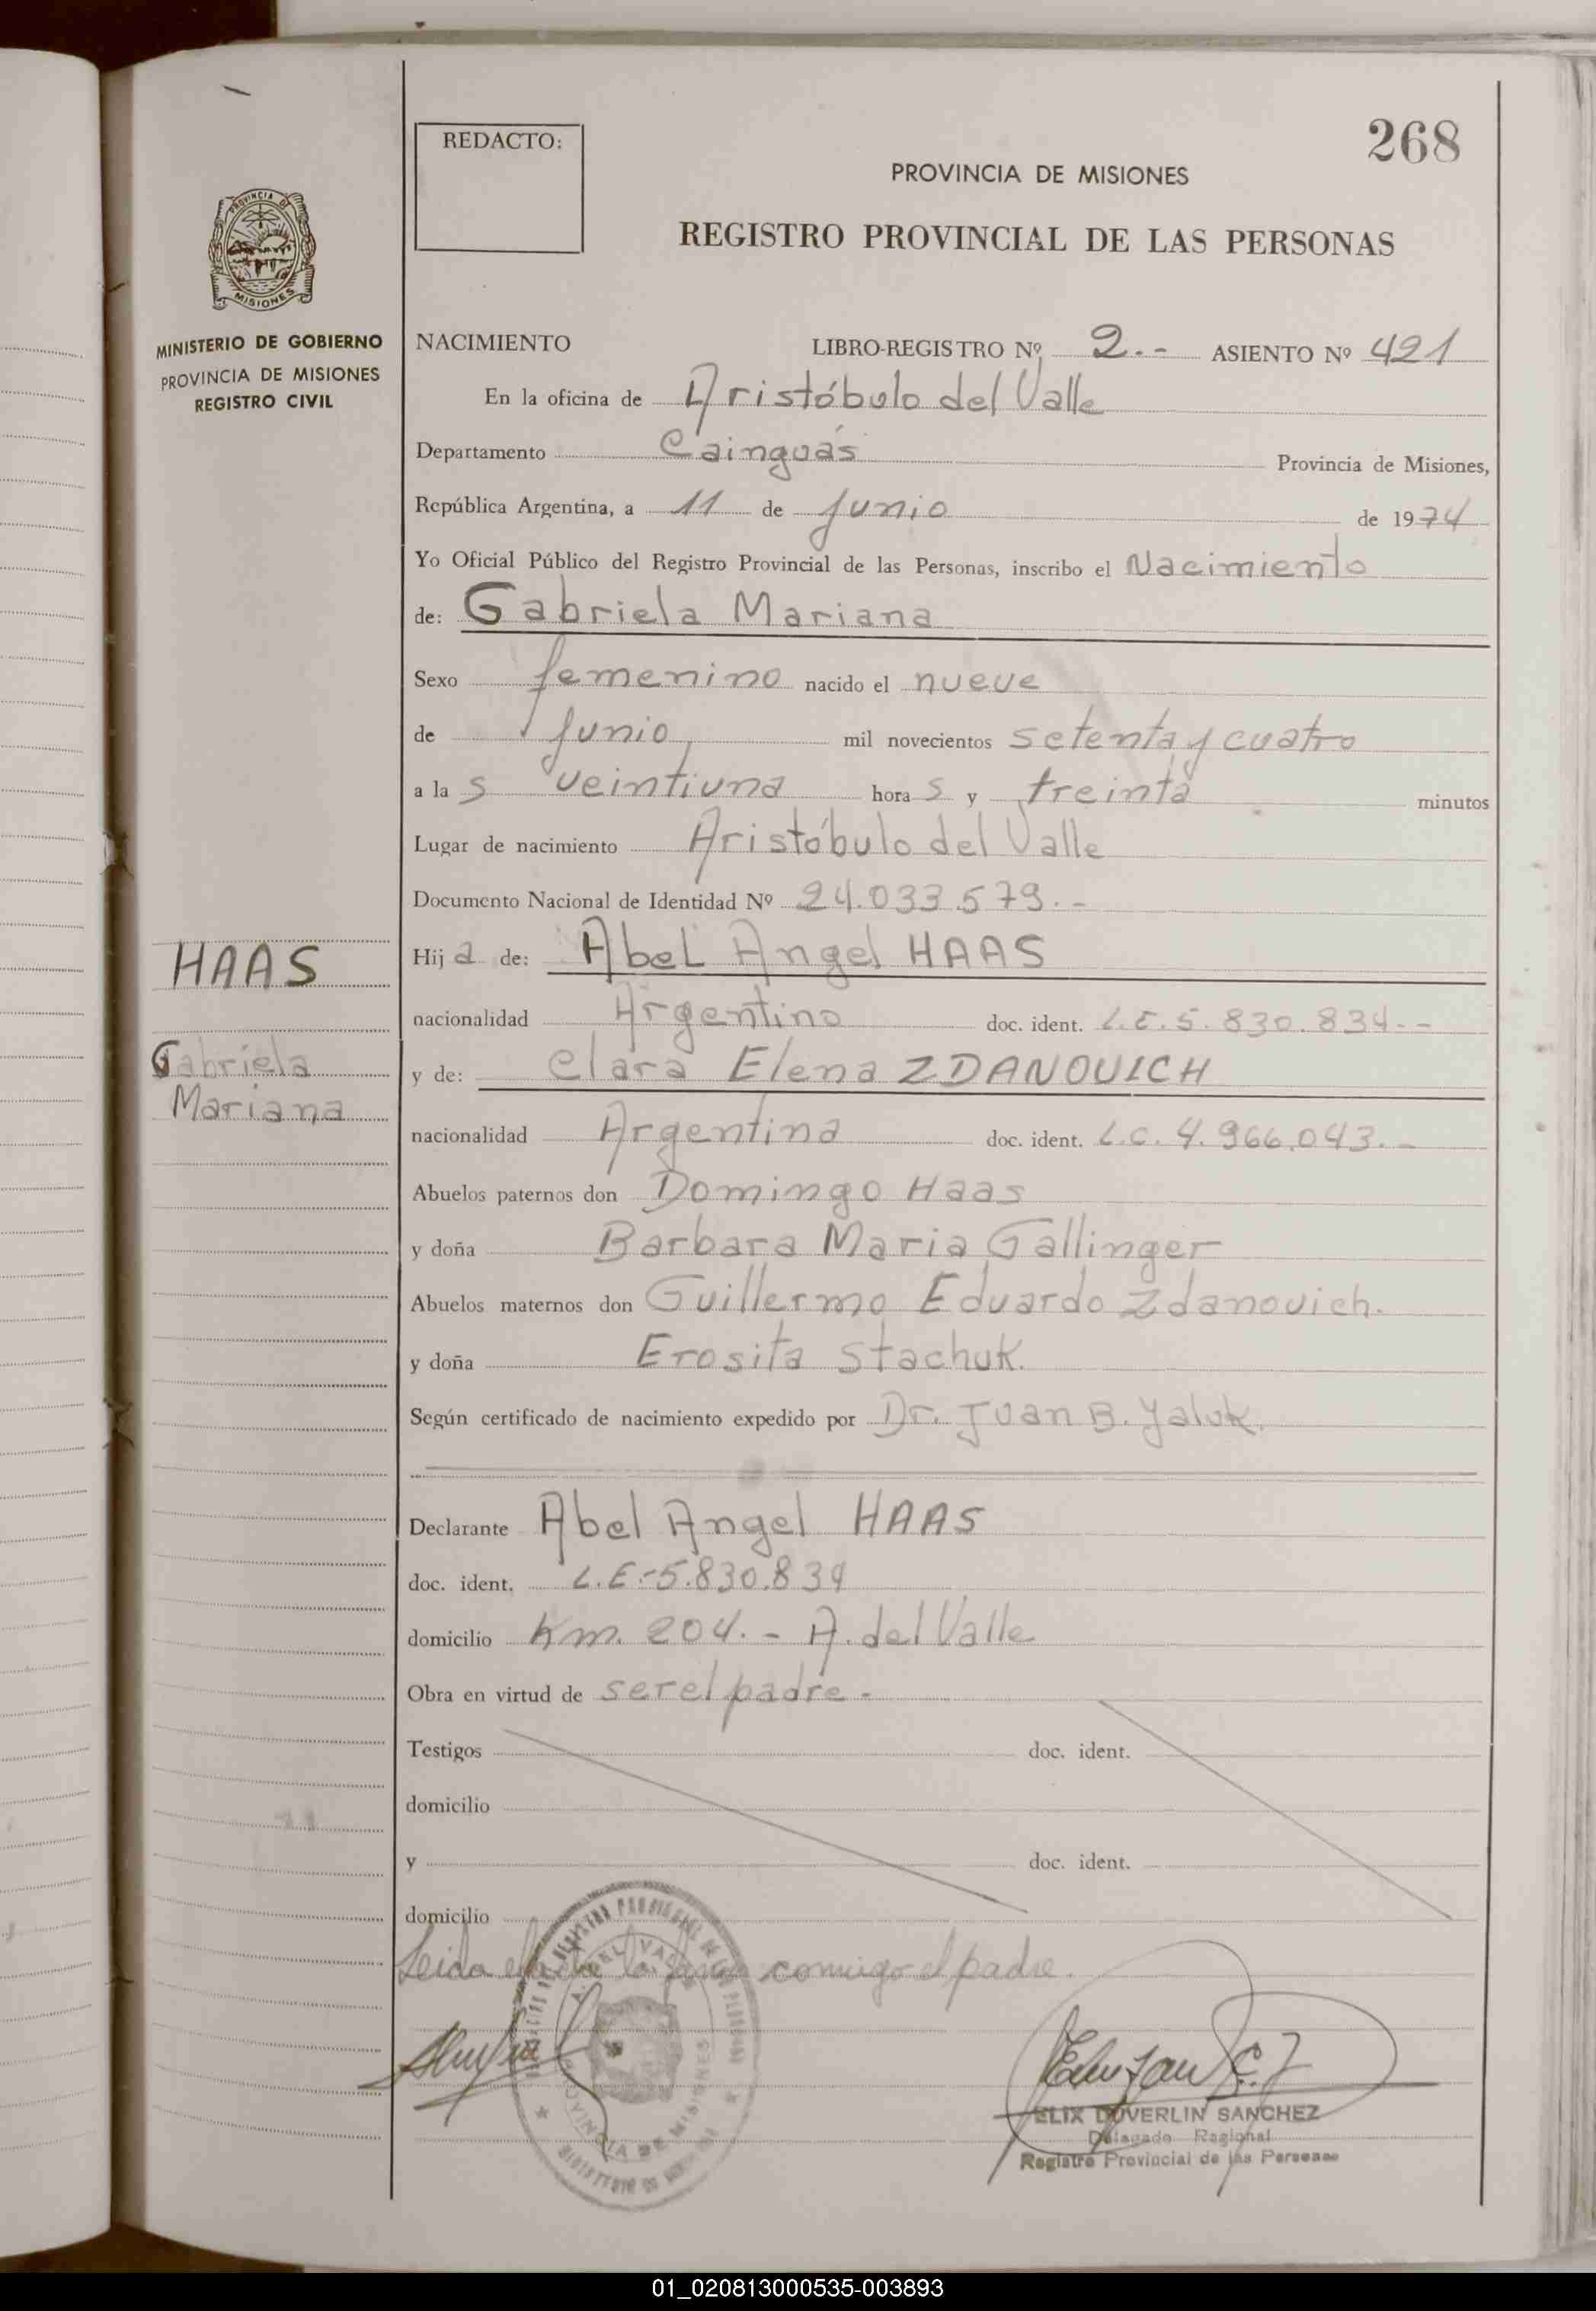 268
REDACTO:
PROVINCIA DE MISIONES
REGISTRO PROVINCIAL DE LAS PERSONAS
PROVINCIA DE
MISIONES
MINISTERIO DE GOBIERNO
PROVINCIA DE MISIONES
REGISTRO CIVIL
NACIMIENTO LIBRO-REGISTRO Nº 2.- ASIENTO Nº 421
En la oficina de Aristóbulo del Valle
Departamento Cainguás Provincia de Misiones,
República Argentina, a 11 de Junio de 1974
Yo Oficial Público del Registro Provincial de las Personas, inscribo el Nacimiento
de: Gabriela Mariana
Sexo femenino nacido el nueve
de Junio, mil novecientos setenta y cuatro
a la s veintiuna hora s y treinta minutos
Lugar de nacimiento Aristóbulo del Valle
Documento Nacional de Identidad Nº 24.033.579.-
HAAS
Hij a de: Abel Angel HAAS
nacionalidad Argentino doc. ident. L.E.5.830.834.-
Gabriela
Mariana
y de: Clara Elena ZDANOVICH
nacionalidad Argentina doc. ident. L.C. 4.966.043.-
Abuelos paternos don Domingo Haas
y doña Barbara Maria Gallinger
Abuelos maternos don Guillermo Eduardo Zdanovich.
y doña Erosita Stachuk.
Según certificado de nacimiento expedido por Dr. Juan B. Yaluk.
Declarante Abel Angel HAAS
doc. ident. L.E.-5.830.834
domicilio Km. 204.- A. del Valle
Obra en virtud de ser el padre-
Testigos doc. ident.
domicilio
y doc. ident.
domicilio
Leida el la conmigo el padre.
A. DEL VALLE
PROVINCIA DE MISIONES
ELIX DUVERLIN SANCHEZ
Delegado Regional
Registro Provincial de las Personas
01_020813000535-003893